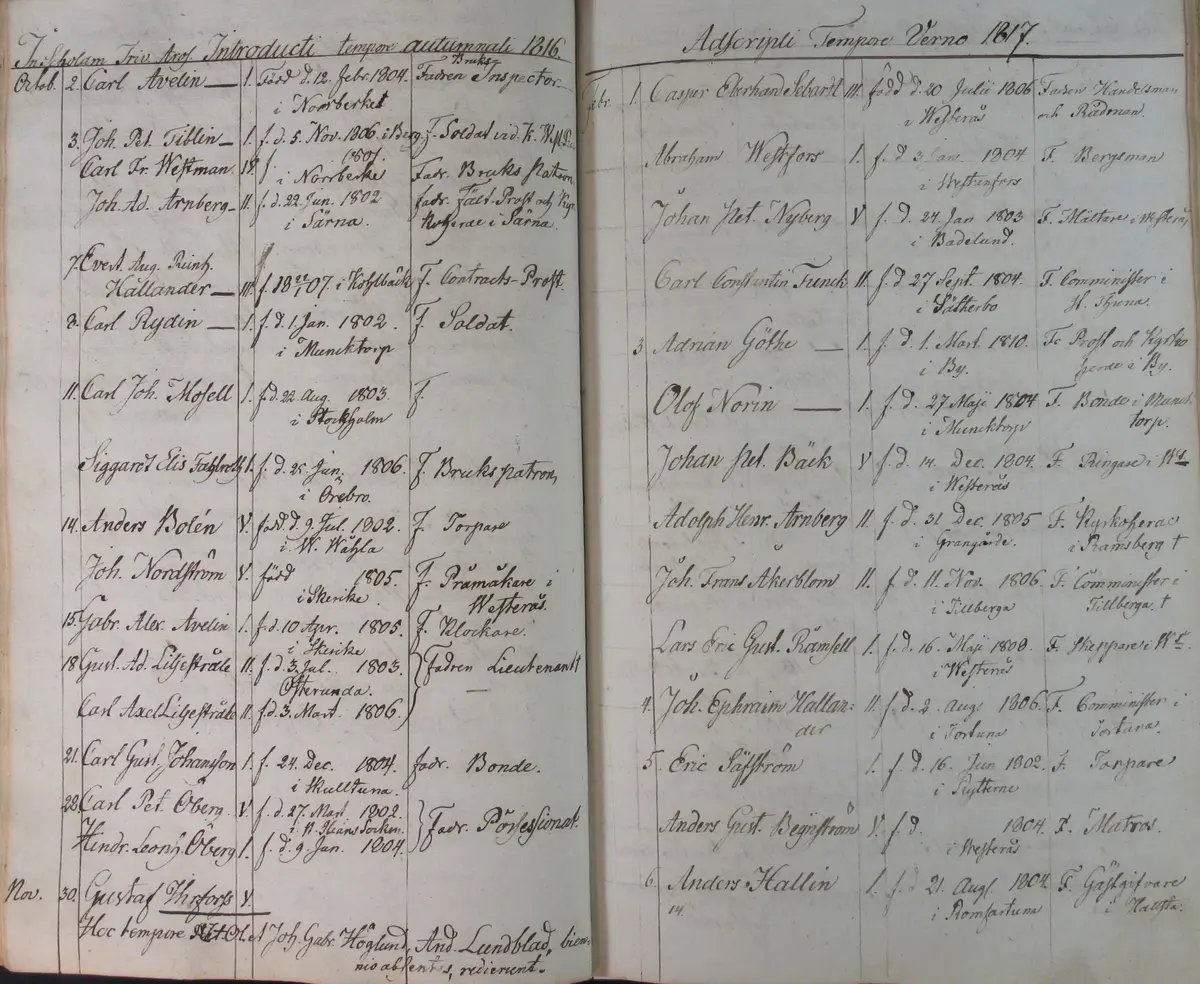 In Scholam Triv. Aros. Introducti tempore autumnali 1816.
Octob. 2. Carl Avelin — I. Född d. 12. Febr. 1804. Fadren Bruks Inspector
i Norrberket
3. Joh. Pet. Tiblin — I. f. d. 5. Nov. 1806. i Berg. F. Soldat vid K. Westm.
Carl Fr. Westman. IV. f. 1801. Fadr. Bruks Patron.
i Norrberke
Joh. Ad. Arnberg — II. f. d. 22. Jun. 1802 fadr. Fält-Prost och Kyr-
i Särna. koherde i Särna.
7. Evert. Aug. Reinh.
Hallander — III. f. 18 22/1 07. i Kohlbäck F. Contracts-Prost.
8. Carl Rydin — I. f. d. 1. Jan. 1802. F. Soldat.
i Muncktorp
11. Carl Joh. Mosell I. f. d. 22. Aug. 1803. F.
i Stockholm
Siggarot Elis I. f. d. 25. Jun. 1806. F. Bruks patron
i Örebro.
14. Anders Bolén V. född d. 9. Jul. 1802. F. Torpare
i W. Wåhla
Joh. Nordström V. född 1805. F. Pråmåkare i
i Skerike. Westerås.
15. Gabr. Alex. Avelin I. f. d. 10 Apr. 1805. F. Klockare.
i Skerike
18. Gust. Ad. Liljestråle II. f. d. 3. Jul. 1803. Fadren Lieutenant
Österunda.
Carl Axel Liljestråle II. f. d. 3. Mart. 1806.
21. Carl Gust. Johansson I. f. 24. Dec. 1804. fadr. Bonde.
i Skultuna.
22. Carl Pet. Öberg. V. f. d. 27. Mart. 1802. Fadr. Possessionat.
i Socken.
Hindr. Leonh. Öberg I. f. d. 9. Jun. 1804.
Nov. 30. Gustaf V.
Hoc tempore Joh. Gabr. Höglund, And. Lundblad, bien-
nio absentes, redierunt.
Adscripti Tempore Verno 1817.
Febr. 1. Caspar Eberhard Sebardt III. född d. 20 Julii 1806 Faren Handelsman
i Westerås och Rådman.
Abraham Westfors I. f. d. 3 Jan. 1804 F. Bergsman
i Westanfors
Johan Pet. Nyberg V f. d. 24. Jan 1803 F. Mältare i Westerås
i Badelund.
Carl Constantin Funck II. f. d. 27 Sept. 1804. F. Comminister i
i Sätherbo
3. Adrian Göthe — I. f. d. 1. Mart. 1810. F. Prost och Kyrko
i By. herde i By.
Olof Norin — I. f. d. 27 Maji 1804 F. Bonde i Munck
i Muncktorp torp.
Johan Pet. Bäck V f. d. 14. Dec. 1804. F. Ringare i Ws
i Westerås
Adolph Henr. Arnberg II. f. d. 31 Dec. 1805 F. Kyrkoherde
i Grangärde. i Ramsberg †
Joh. Frans Åkerblom II. f. d. 11. Nov. 1806. F. Comminister i
i Tillberga Tillberga. †
Lars Eric Gust. Ramsell I. f. d. 16. Maji 1809. F. Skeppare i Ws.
i Westerås
4. Joh. Ephraim Hallan- II. f. d. 2. Aug. 1806. F. Comminister i
der i Tortuna Tortuna.
5. Eric Säfström I. f. d. 16. Jun 1802. F. Torpare
i Rytterne
Anders Gust. V. f. d. 1804. F. Matros.
i Westerås
6. Anders Hallin I. f. d 21. Aug. 1804. F. Gästgifvare
14. i Romfartuna i Hallsta.